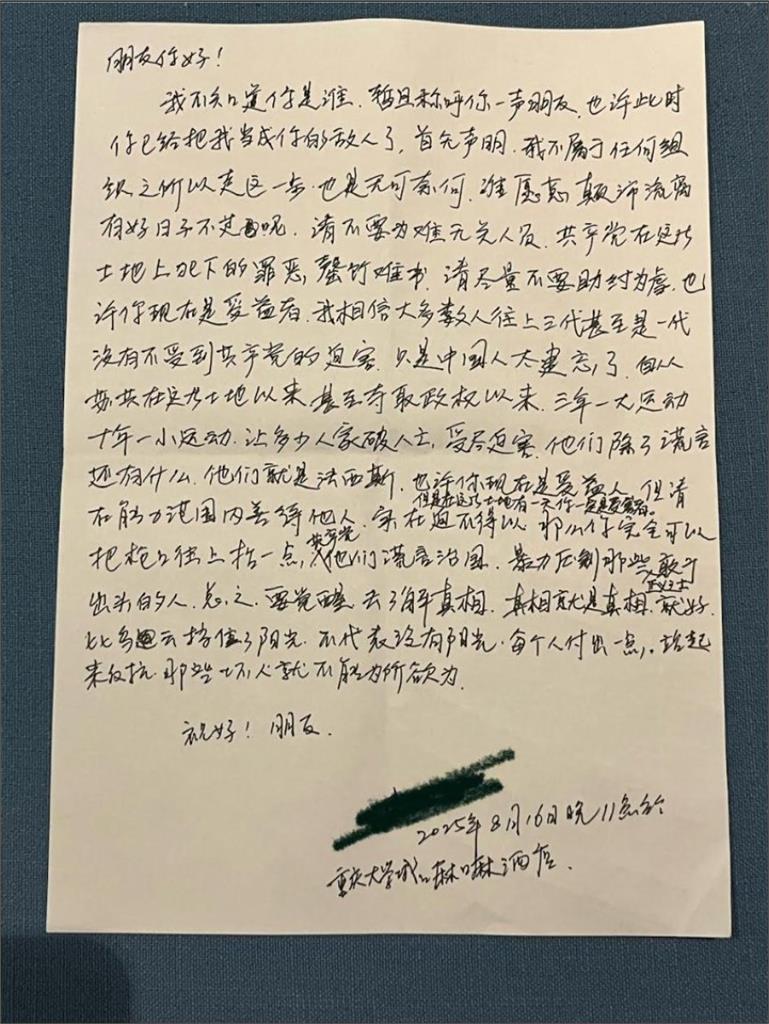 朋友你好!
我不知道你是谁.暂且称呼你一声朋友.也许此时
你已给把我当成你的敌人了,首先声明.我不属于任何组
织之所以走这一步.也是无可奈何.谁愿意,颠沛流离
有好日子不过呢.请不要为难无关人员.共产党在这片
土地上犯下的罪恶,罄竹难书.请尽量不要助纣为虐.也
许你现在是受益者.我相信大多数人往上三代甚至是一代
没有不受到共产党的迫害.只是中国人太健忘,了.自从
共在这片土地以来.甚至夺取政权以来.三年一大运动
十年一小运动.让多少人家破人亡,受尽迫害.他们除了谎言
还有什么.他们就是法西斯.也许你现在是受益人.但请
但是在这片土地有一天你一定是受害者.
在能力范围内善待他人.实在迫不得以.那么你完全可以
把枪口往上抬一点,共产党他们谎言治国.暴力压制那些敢于
出头的人义士.总之.要觉醒.去了解真相.真相就是真相.就好
比乌云挡住了阳光.不代表没有阳光.每个人付出一点,.站起
来反抗.那些坏人就不能为所欲为.
祝好!朋友.
2025年8月16日晚11点于
重庆大学城 酒店.